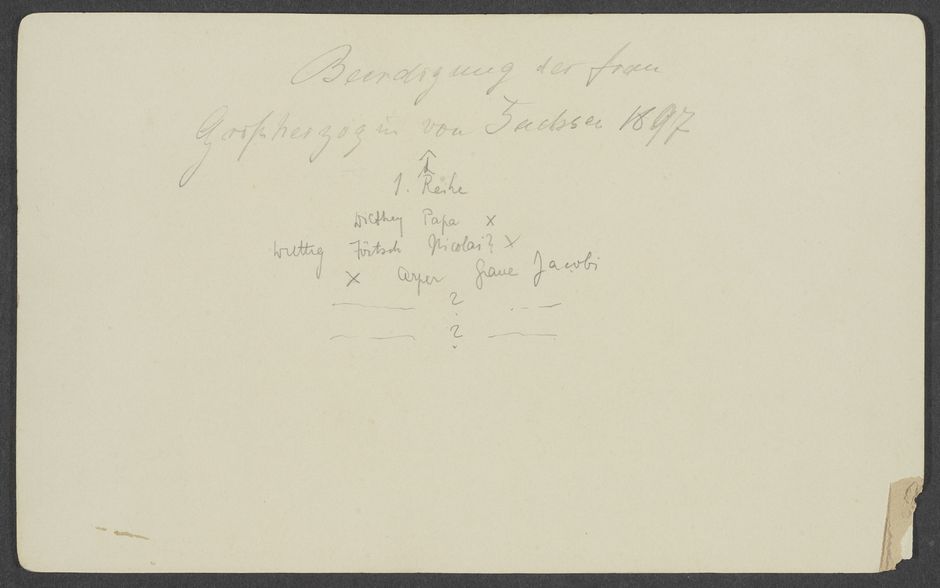 Beerdigung der Frau
Großherzogin von Sachsen 1897
1. Reihe
Papa x
Wittig Förtsch Nicolai? x
x Graue Jacobi
— ? —
— ? —